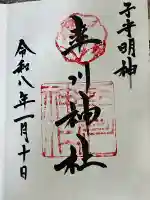 子守明神
来川神社
令和八年一月十日